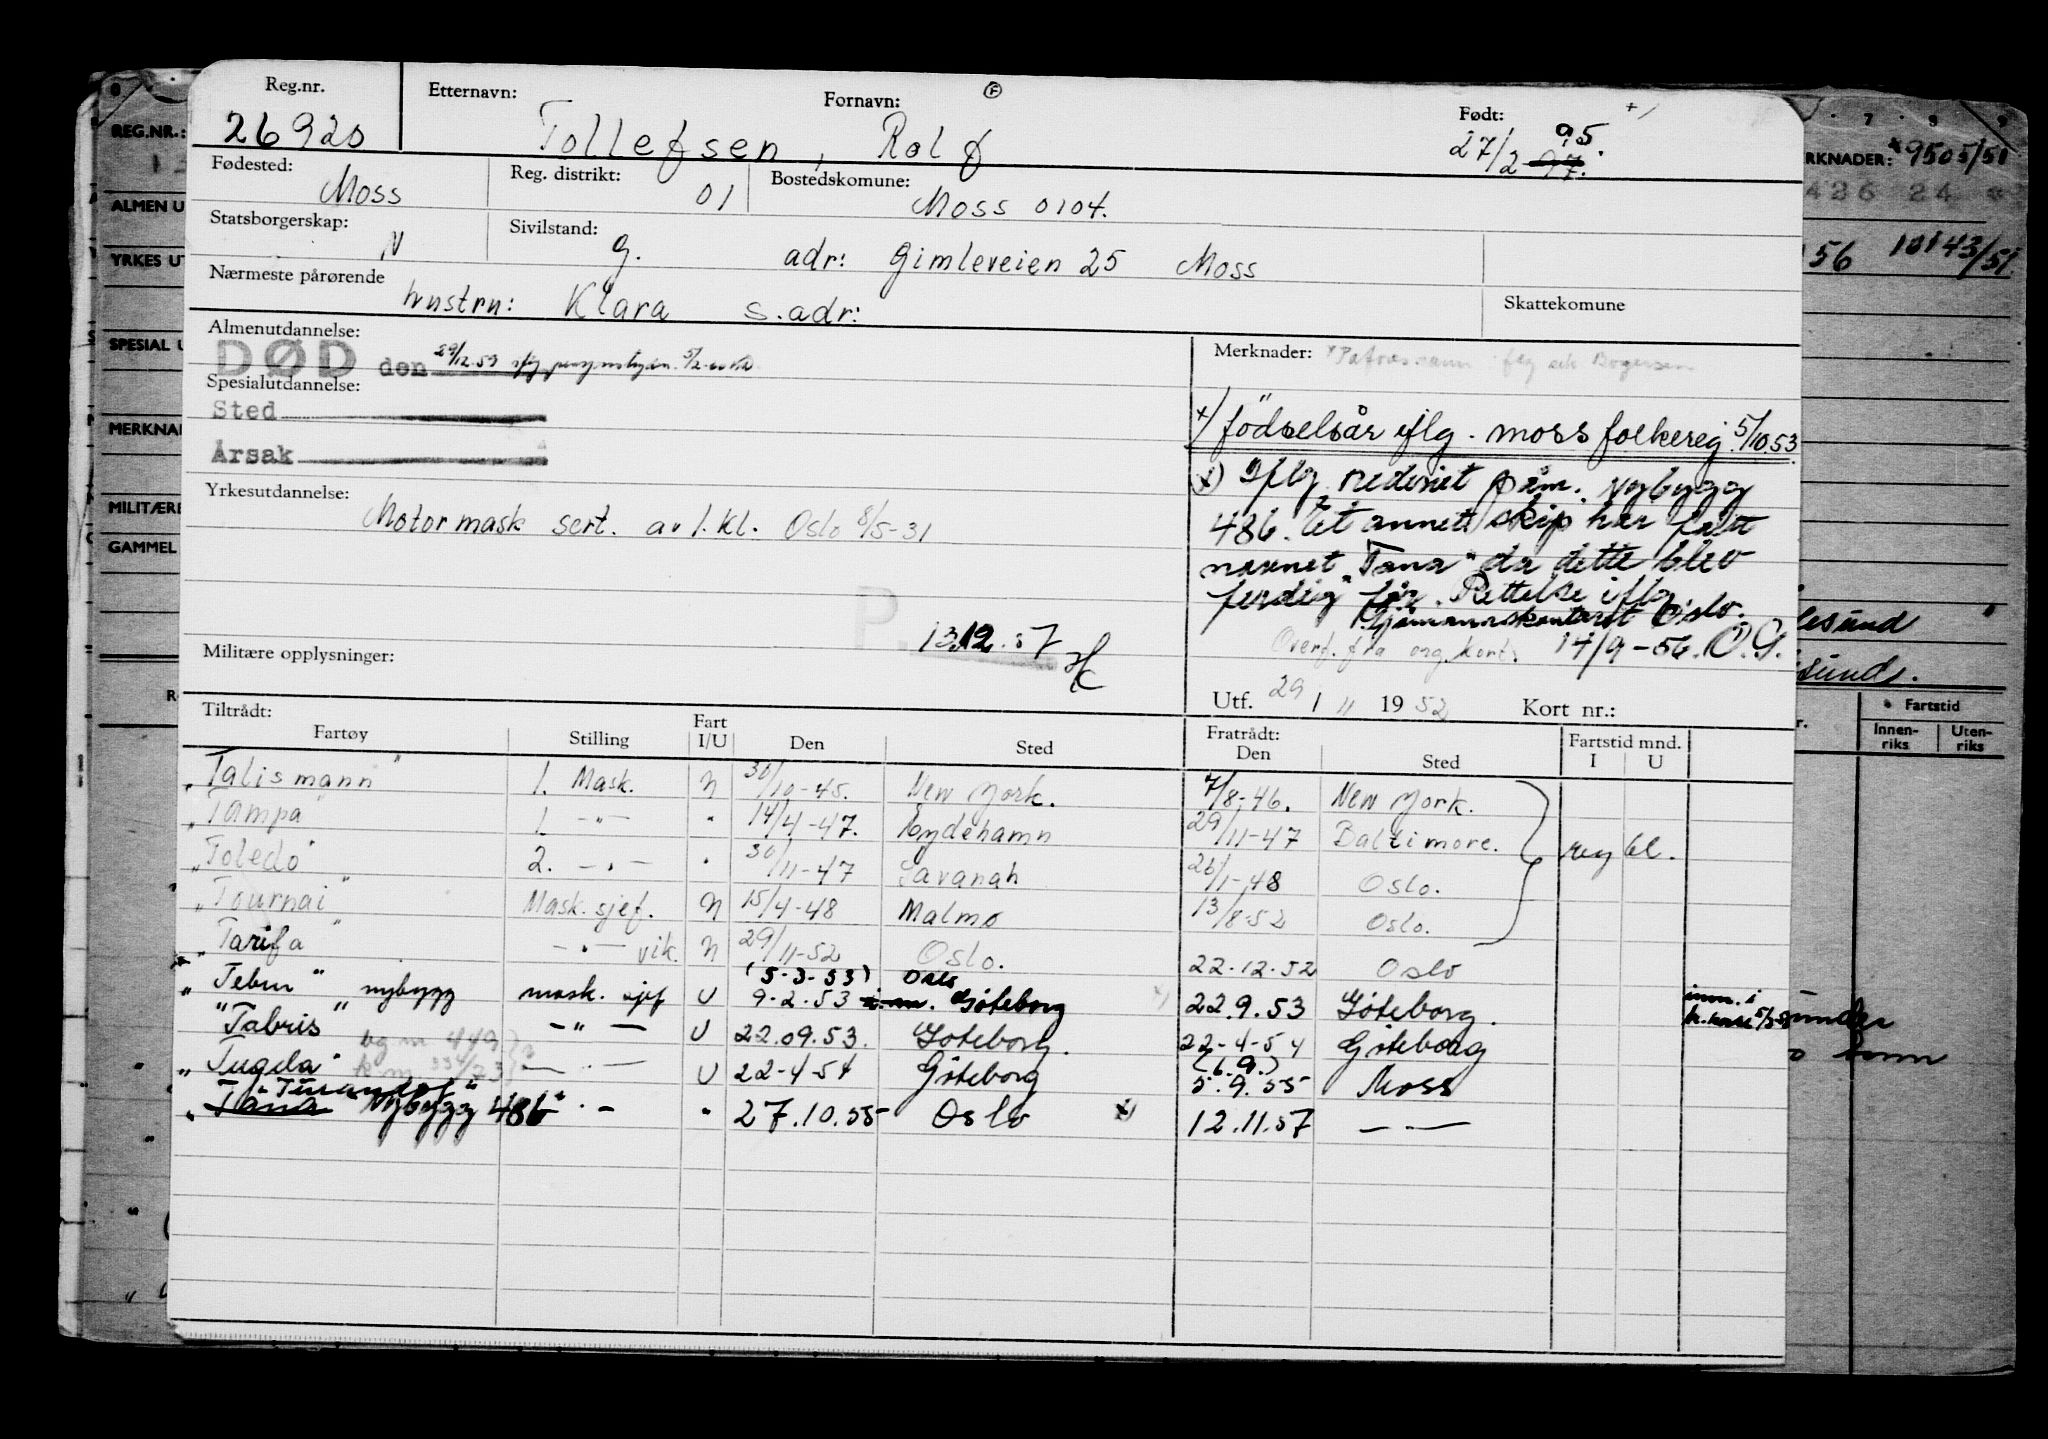 Reg.nr. Etternavn: Fornavn: Født:
26920 Tollefsen, Rolf 27/2 95. 97.
Fødested: Moss Reg. distrikt: 01 Bostedskomune: Moss 0104.
Statsborgerskap: N Sivilstand: g. adr: Gimleveien 25 Moss
Nærmeste pårørende hustru: Klara s. adr: Skattekomune
Almenutdannelse: Merknader:
DØD den 29/12.59
Spesialutdannelse:
Sted
Årsak
+) födselsår iflg. moss folkereg. 5/10.53
x) Iflg. rederiet
486. Et annet skip har fått
navnet "Tana" da dette blev
ferdig før. Rettelse iflg.
Sjömannskontoret Oslo.
Overf. fra org. kort. 14/9-56. O.G.
Yrkesutdannelse: Motormask sert. av 1. kl. Oslo 8/5-31
13.12.57
Militære opplysninger:
Utf. 29 / 11 1952 Kort nr.:
Tiltrådt: Fratrådt:
Fartøy Stilling Fart I/U Den Sted Den Sted Fartstid mnd. I U
"Talismann" 1. Mask. N 30/10-45. New York. 7/8-46. New York.
"Tampa" 1. -"- " 14/4-47. Eydehamn 29/11-47 Baltimore.
"Toledo" 2. -"- " 30/11-47 Savanah 26/1-48 Oslo.
"Tournai" Mask. sjef. N 15/4-48 Malmø 13/8-52 Oslo.
"Tarifa" -"- vik. N 29/11-52 Oslo. 22.12.52 Oslo
(5.3.53) Oslo
nybygg mask. sjef U 9.2.53 Göteborg 22.9.53 Göteborg.
"Tabris" -"- U 22.09.53. Göteborg. 22-4-54 Göteborg
"Tugela" U 22-4-54 Göteborg (6.9.) 5.9.55 Moss
"Turandot"
"Tana" Nybygg 486" -"- " 27.10.55 Oslo x) 12.11.57 -"-
REG.NR.:
ALMEN U
YRKES UT
SPESIAL U
MERKNAD
MILITÆRE
GAMMEL
RKNADER: 9505/51
426 24
156 10143/51
Fartstid
Innen-riks Uten-riks